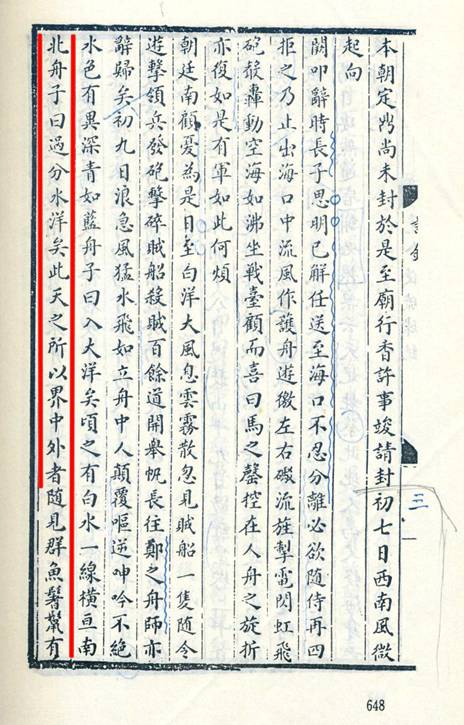 本朝定鼎尚未封於是至廟行香許事竣請封初七日西南風微
起向
闕叩辭時長子思明已解任送至海口不忍分離必欲隨侍再四
拒之乃止出海口中流風作護舟遊徼左右礮流旌掣電閃虹飛
砲發轟動空海如沸坐戰臺顧而喜曰馬之罄控在人舟之旋折
亦復如是有軍如此何煩
朝廷南顧憂為是日至白洋大風息雲霧散忽見賊船一隻隨令
遊擊領兵發砲擊碎賊船殺賊百餘道開舉帆長往鄭之舟師亦
辭歸矣初九日浪急風猛水飛如立舟中人顛覆嘔逆呻吟不絕
水色有異深青如藍舟子曰入大洋矣頃之有白水一線橫亘南
北舟子曰過分水洋矣此天之所以界中外者隨見群魚鬐鬣有
三
648